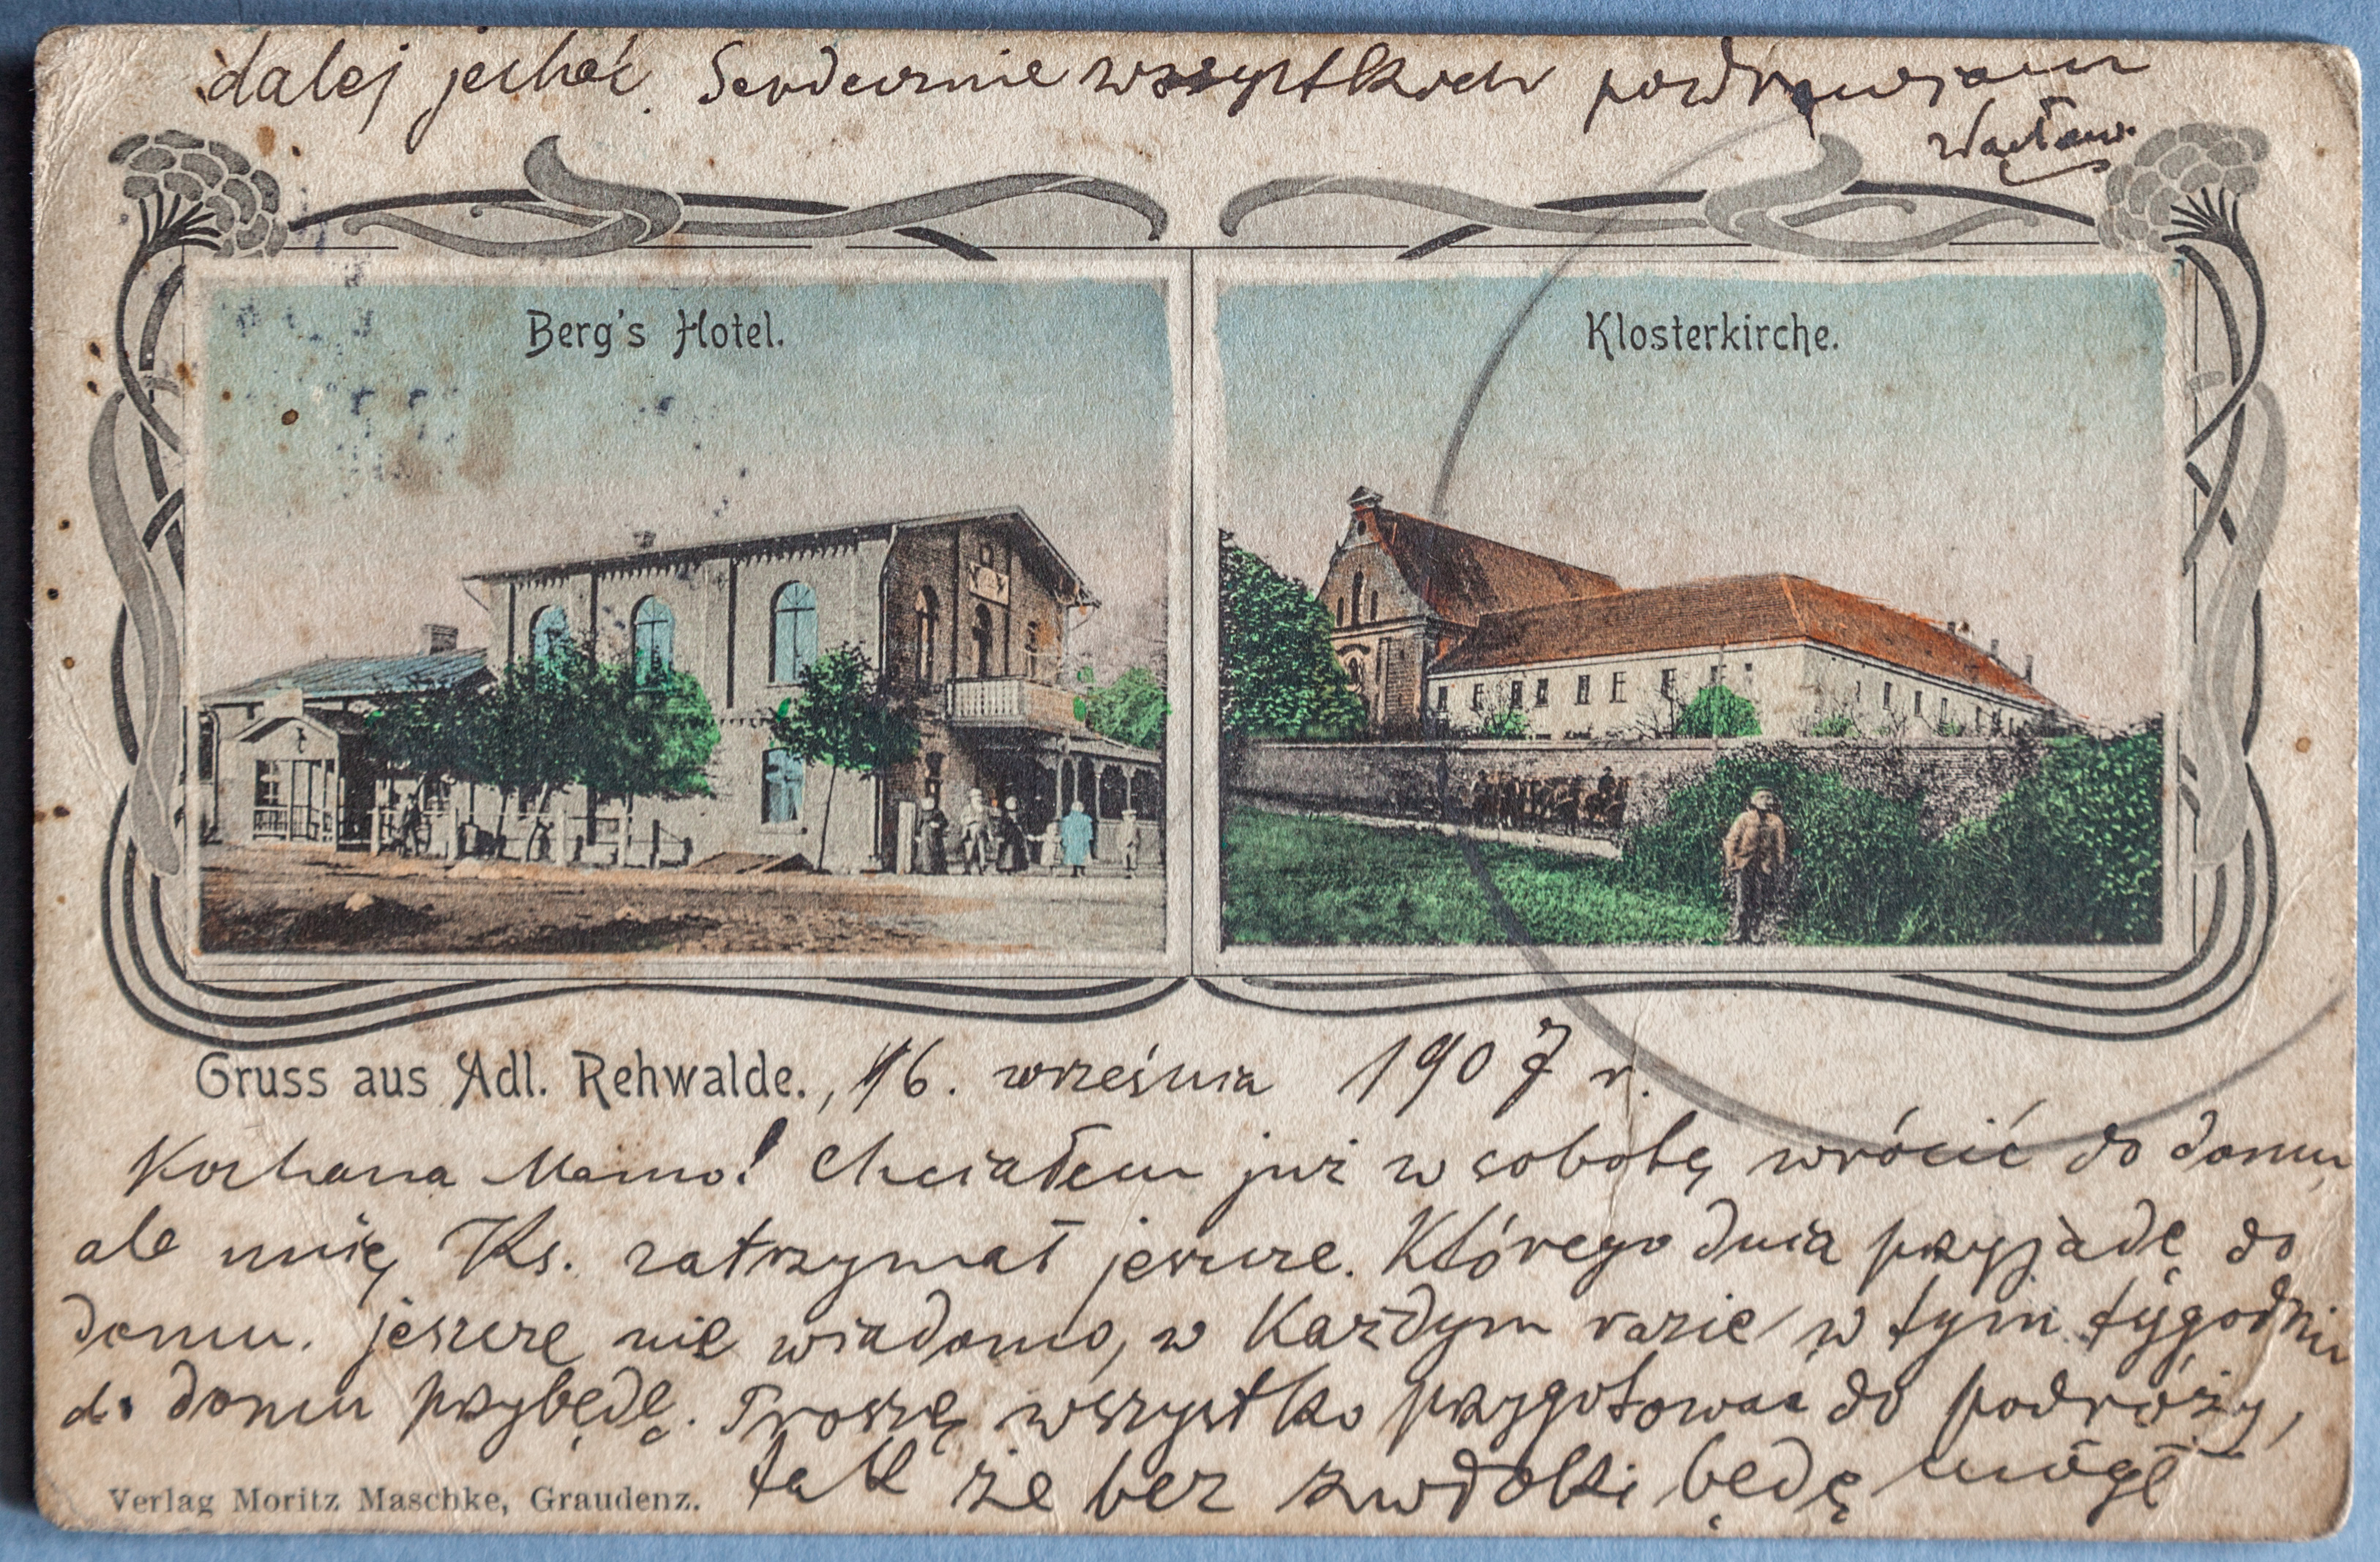 dalej jechać. Serdecznie wszystkich pozdrawiam
Wacław.
Berg's Hotel.
Klosterkirche.
Gruss aus Adl. Rehwalde., 16. września 1907 r.
Kochana Mamo! Chciałem już w sobotę wrócić do domu,
ale mnię Ks. zatrzymał jeszcze. Którego dnia przyjadę do
domu. jeszcze nie wiadomo, w każdym razie w tym tygodniu
do domu przybędę. Proszę wszystko przygotować do podróży,
tak że bez zwłoki będę mógł
Verlag Moritz Maschke, Graudenz.